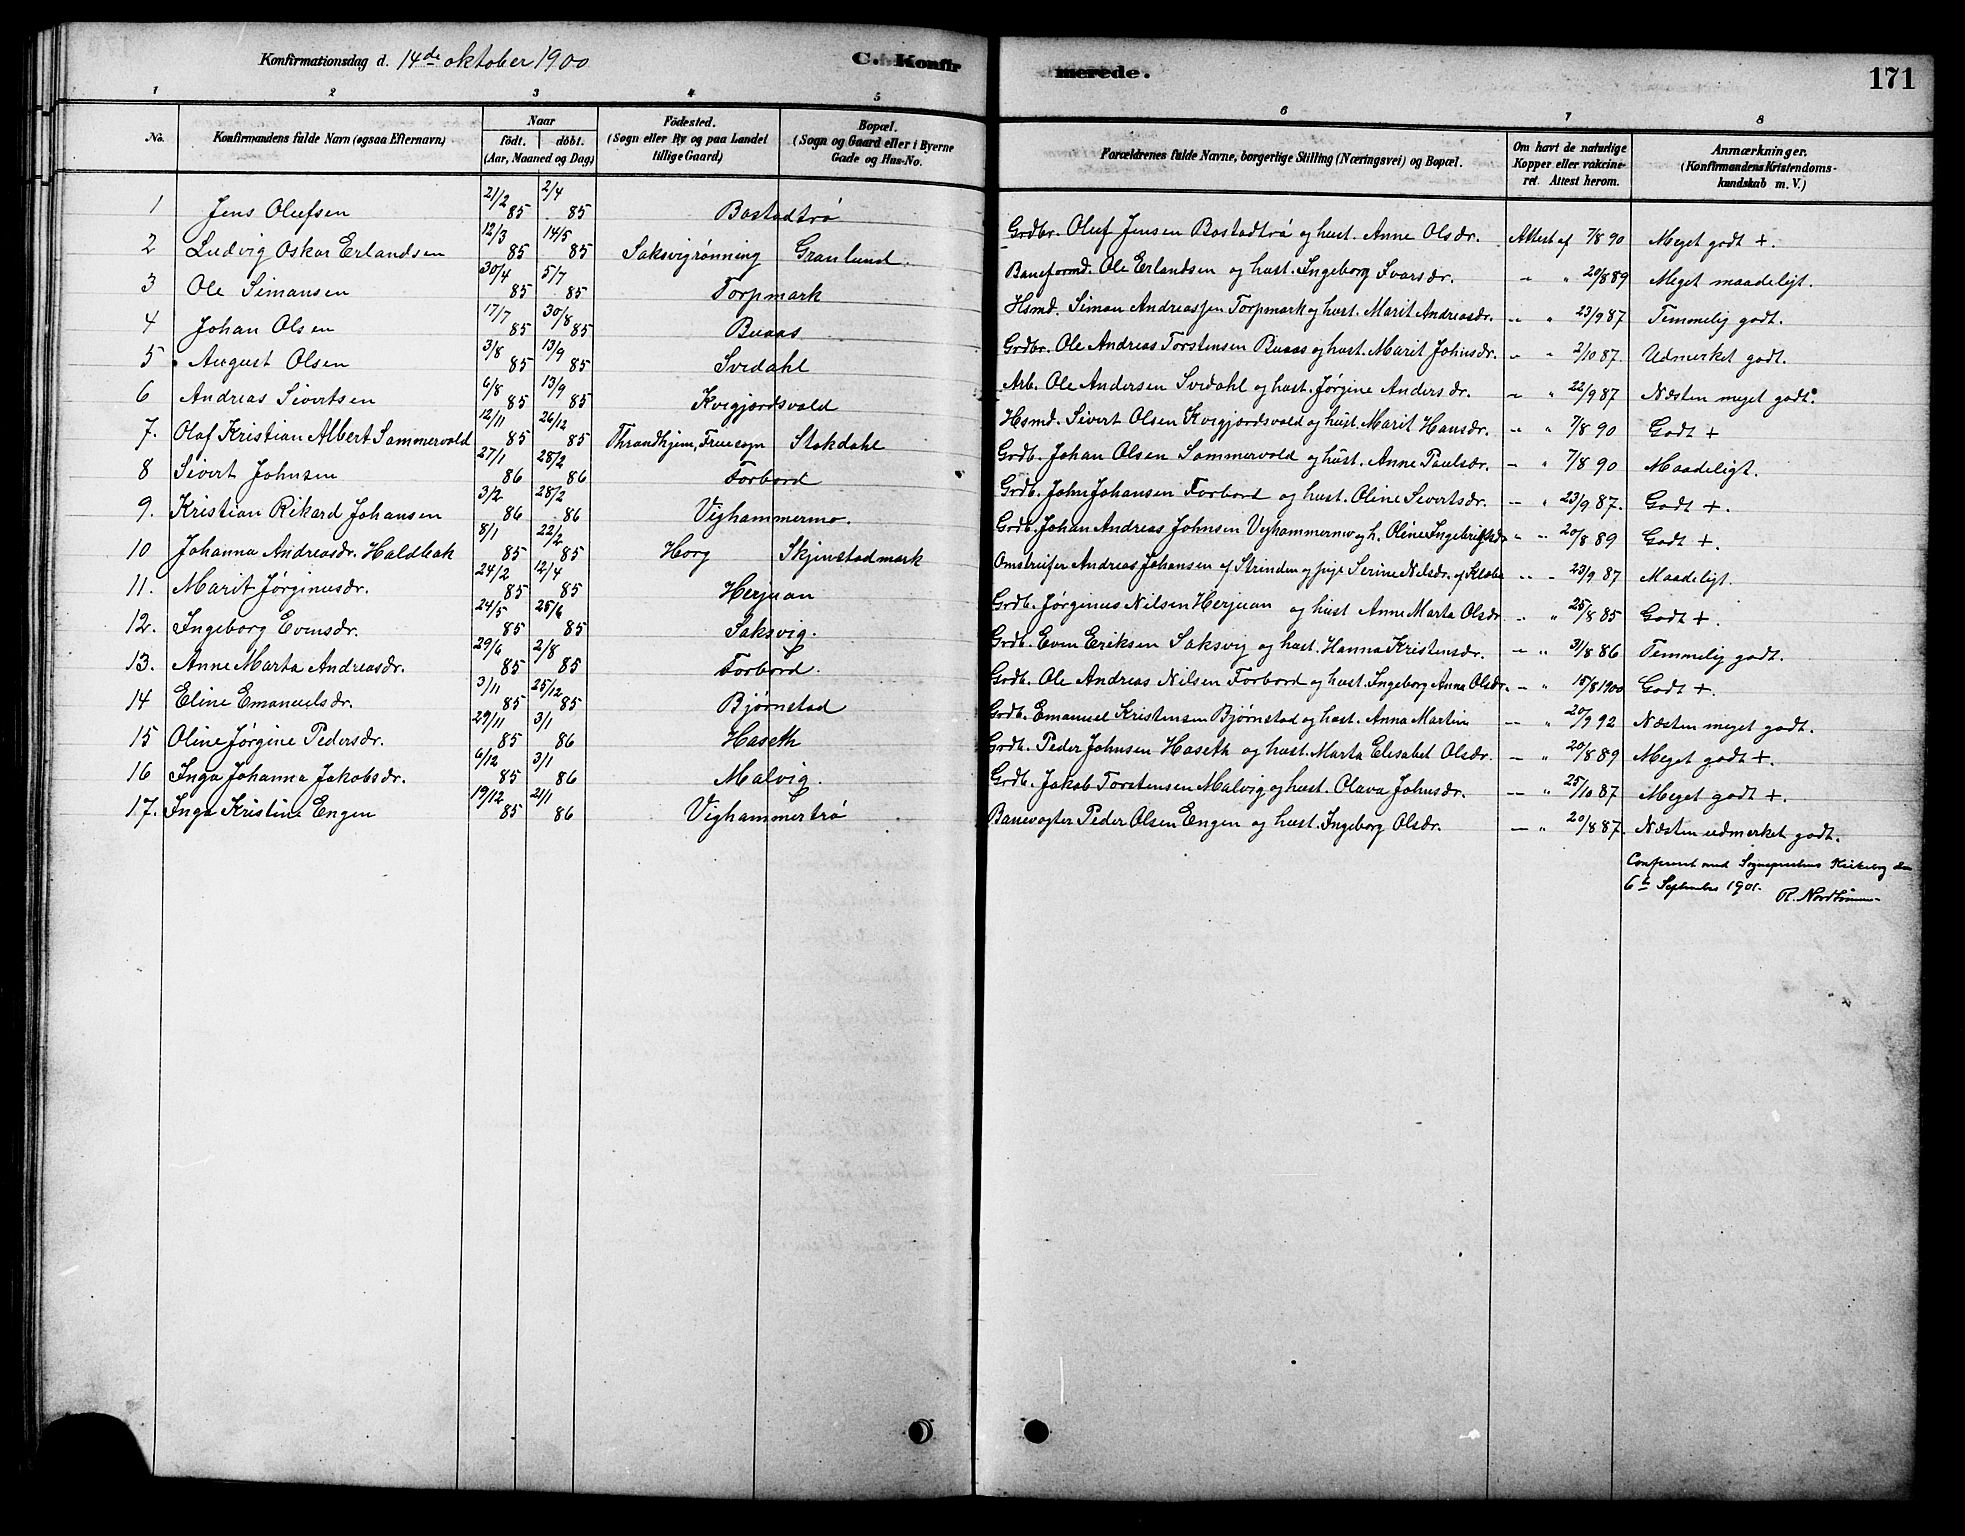 Konfirmationsdag d. 14de oktober 1900 C. Konfirmerede. 171
1 2 3 4 5 6 7 8
No. Konfirmandens fulde Navn (ogsaa Efternavn) Naar født. døbt. (Aar, Maaned og Dag) Födested. (Sogn eller By og paa Landet tillige Gaard) Bopæl. (Sogn og Gaard eller i Byerne Gade og Hus-No. Forældrenes fulde Navne, borgerlige Stilling (Næringsvei) og Bopæl. Om havt de naturlige Kopper eller vaccineret. Attest herom. Anmærkninger. (Konfirmandens Kristendomskundskab m. V.)
1 Jens Olufsen 21/2 85 2/4 85 Bostadtrø Grdbr. Oluf Jensen Bostadtrø og hust. Anne Olsdr. Attest af 7/8 90 Meget godt +.
2 Ludvig Oskar Erlandsen 12/3 85 14/5 85 Saksvigrønning Granlund. Baneformd. Ole Erlandsen og hust. Ingeborg Ivarsdr. " " 20/8 89 Meget maadeligt.
3 Ole Simonsen 30/4 85 5/7 85 Torpmark Hsmd. Simon Andreassen Torpmark og hust. Marit Andreasdr. " " 23/9 87 Temmelig godt.
4 Johan Olsen 17/7 85 30/8 85 Buaas Grdbr. Ole Andreas Torstensen Buaas og hust. Marit Johnsdr. " " 2/10 87. Udmerket godt.
5 August Olsen 3/8 85 13/9 85 Svedahl Arb. Ole Andersen Svedahl og hust. Jørgine Andersdr. " " 22/9 87 Næsten meget godt.
6 Andreas Sivertsen 6/8 85 13/9 85 Kvigjordsvold Hsmd. Sivert Olsen Kvigjordsvold og hust. Marit Hansdr. " " 7/8 90 Godt +
7. Olaf Kristian Albert Sommervold 12/11 85 26/12 85 Throndhjem, Fruesogn Stokdahl Grdb. Johan Olsen Sommervold og hust. Anne Paulsdr. — " 7/8 90 Maadeligt.
8 Sivert Johnsen 27/1 86 28/2 86 Forbord Grdb. John Johansen Forbord og hust. Oline Sivertsdr. — " 23/9 87. Godt +.
9. Kristian Rikard Johansen 3/2 86 28/2 86 Vighammermo. Grdb. Johan Andreas Johnsen Vighammermo og h. Oline Ingebrigtsdr " " 20/8 89 Godt +.
10 Johanna Andreasdr. Haldbak 8/1 85 22/2 85 Horg Skjenstadmark Omstreifer Andreas Johansen af Strinden og pige Serine Nilsdr. af Klæbu " " 23/9 87 Maadeligt.
11. Marit Jørginusdr. 24/2 85 12/4 85 Herjuan Grdb. Jørginus Nilsen Herjuan og hust Anne Marta Olsdr " " 25/8 85 Godt +.
12. Ingeborg Evensdr. 24/5 85 25/6 85 Saksvig. Grdb. Even Eriksen Saksvig og hust. Hanna Kristensdr. — " 31/8 86 Temmelig godt.
13. Anne Marta Andreasdr. 29/6 85 2/8 85 Forbord. Grdb. Ole Andreas Nilsen Forbord og hust. Ingeborg Anna Olsdr. — " 15/8 1900 Godt +.
14 Eline Emanuelsdr. 3/11 85 25/12 85 Bjørnstad Grdb. Emanuel Kristensen Bjørnstad og hust. Anna Martin — " 20/9 92 Næsten meget godt.
15 Oline Jørgine Pedersdr. 29/11 85 3/1 86 Haseth Grdb. Peder Johnsen Haseth og hust. Marta Elisabet Olsdr. — " 20/8 89 Meget godt +.
16 Inga Johanna Jakobsdr. 6/12 85 3/1 86 Malvig. Grdb. Jakob Torstensen Malvig og hust. Olava Johnsdr. — " 25/10 87 Meget godt +.
17. Inga Kristine Engen 19/12 85 2/1 86 Vighammertrø Banevogter Peder Olsen Engen og hust. Ingeborg Olsdr. — " 20/8 87. Næsten udmerket godt.
Confereret med Sognepræstens Kirkebog den
6te September 1901.
R.